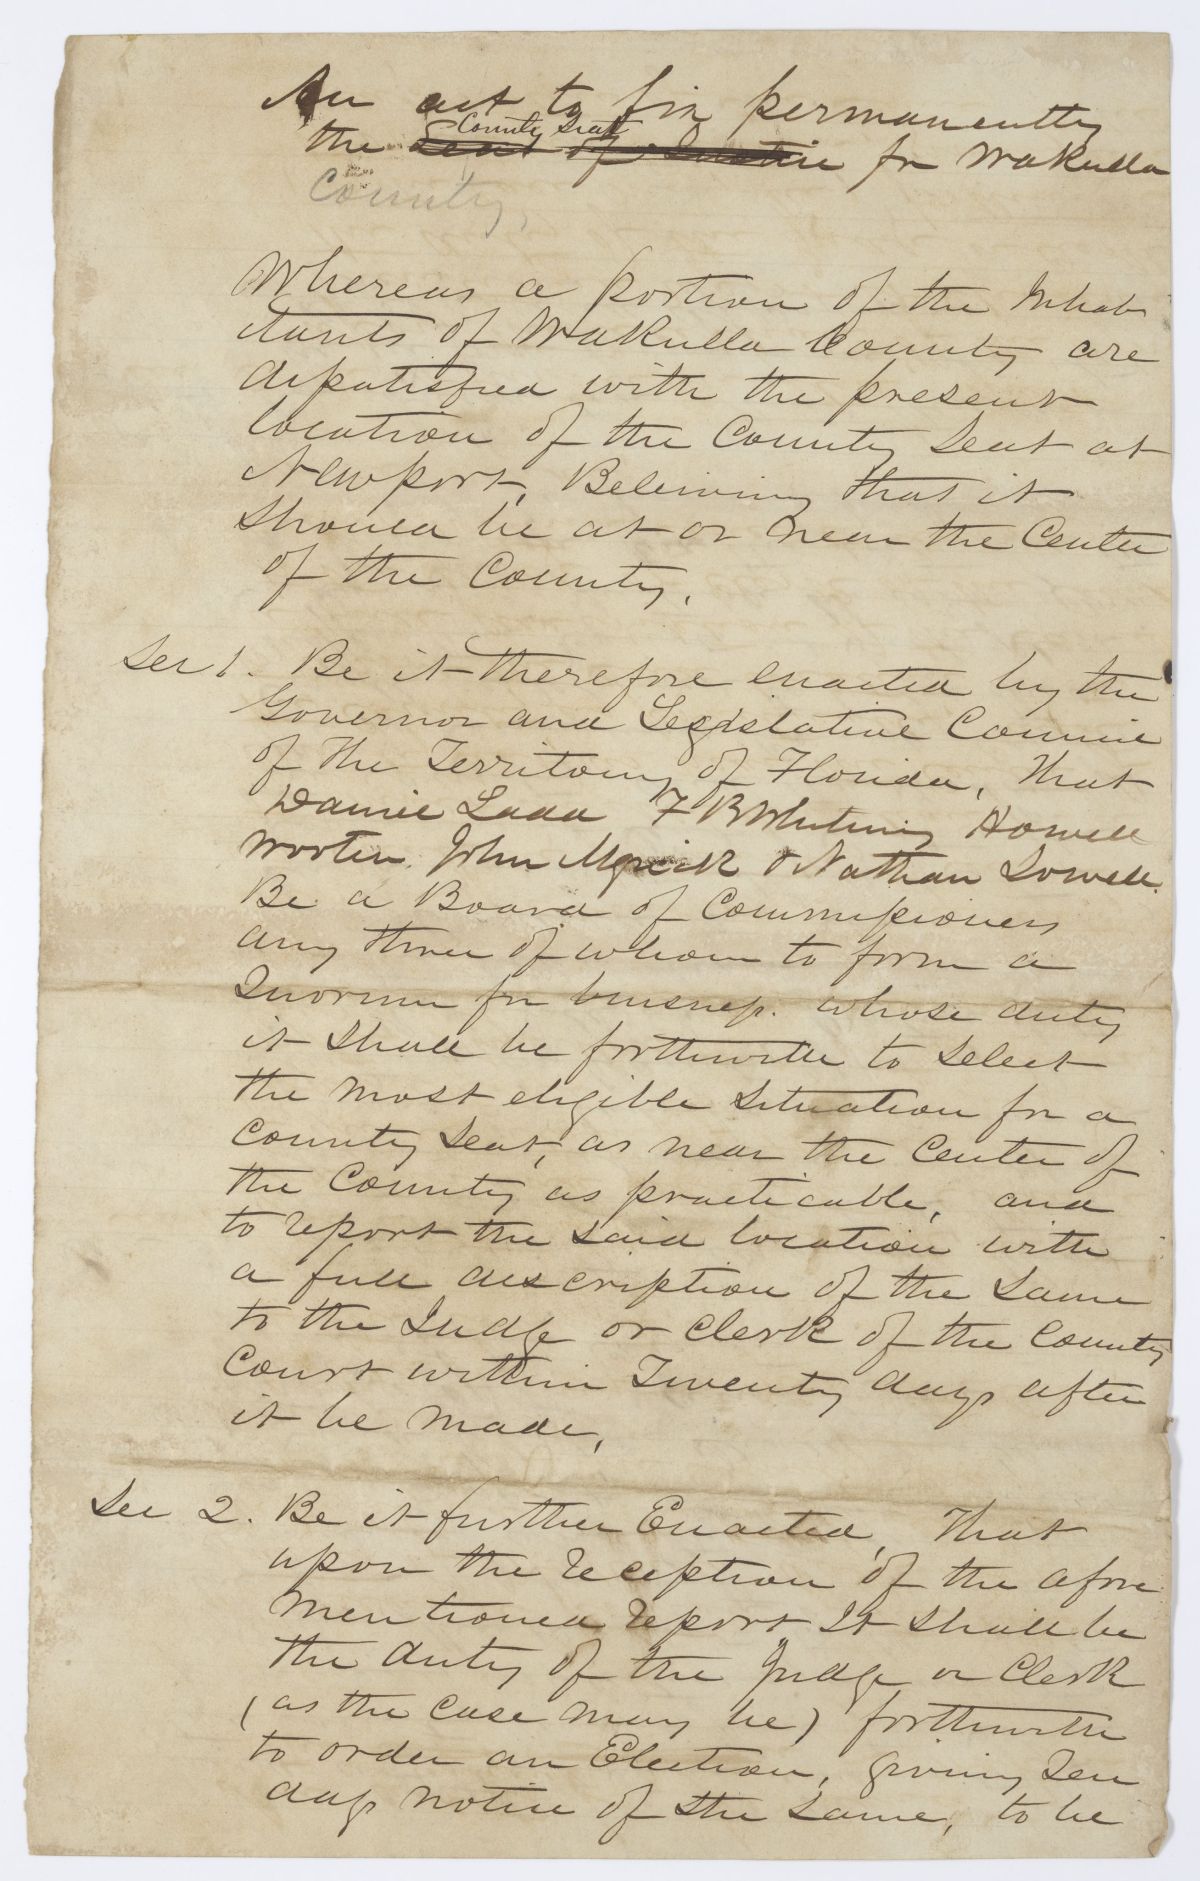 An act to fix permanently
the Seat of Justice County Seat for Wakulla
County,
Whereas a portion of the Inhabi
tants of Wakulla County are
dissatisfied with the present
location of the County Seat at
Newport, Beleiving that it
should be at or near the Center
of the County,
Sec 1. Be it therefore enacted by the
Governor and Legislative Council
of the Territory of Florida, that
Daniel Ladd F B Whiting Howell
Wooten John Myrick & Nathan Sowell.
Be a Board of Commissioners
any three of whom to form a
Quorum for business. whose duty
it shall be forthwith to select
the most eligible situation for a
County Seat, as near the Center of
the County as practicable, and
to report the said location with
a full description of the same
to the Judge or Clerk of the County
Court within Twenty days after
it be made,
Sec 2. Be it further Enacted, That
upon the reception of the afore
mentioned report It shall be
the duty of the Judge or Clerk
(as the case may be) forthwith
to order an Election, giving Ten
days notice of the same, to be